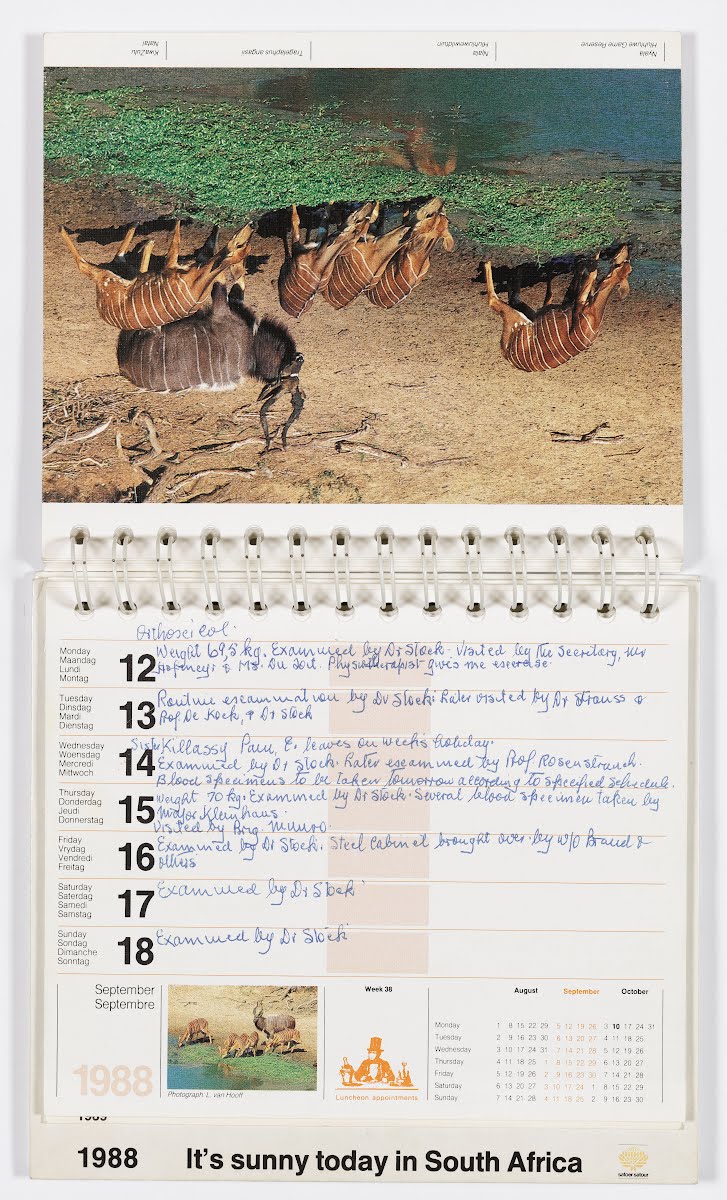 Nyala
Hluhluwe Game Reserve
Njala
Hluhluwewildtuin
Tragelaphus angasii
KwaZulu
Natal
Orthoscicol.
Monday
Maandag
Lundi
Montag
12
Weight 69,5 kg. Examined by Dr Stock. Visited by the Secretary, Mr
Hofmeyr & Ms. Du Toit. Physiotherapist gives me exercise.
Tuesday
Dinsdag
Mardi
Dienstag
13
Routine examination by Dr Stock. Later visited by Dr Strauss &
Prof De Kock, & Dr Stock
Wednesday
Woensdag
Mercredi
Mittwoch
14
Sister Killassy Pam, E. leaves on week's holiday.
Examined by Dr Stock. Later examined by Prof Rosenstrauch.
Blood specimens to be taken tomorrow according to specified schedule.
Thursday
Donderdag
Jeudi
Donnerstag
15
Weight 70 kg. Examined by Dr Stock. Several blood specimen taken by
Major Kleinhaus.
Visited by Brig. Munro.
Friday
Vrydag
Vendredi
Freitag
16
Examined by Dr Stock. Steel Cabinet brought over by W/O Brand &
others
Saturday
Saterdag
Samedi
Samstag
17
Examined by Dr Stock
Sunday
Sondag
Dimanche
Sonntag
18
Examined by Dr Stock
September
Septembre
1988
Photograph: L. van Hooff
Week 38
Luncheon appointments
August September October
Monday 1 8 15 22 29 5 12 19 26 3 10 17 24 31
Tuesday 2 9 16 23 30 6 13 20 27 4 11 18 25
Wednesday 3 10 17 24 31 7 14 21 28 5 12 19 26
Thursday 4 11 18 25 1 8 15 22 29 6 13 20 27
Friday 5 12 19 26 2 9 16 23 30 7 14 21 28
Saturday 6 13 20 27 3 10 17 24 1 8 15 22 29
Sunday 7 14 21 28 4 11 18 25 2 9 16 23 30
1989
1988 It's sunny today in South Africa
satour satoer